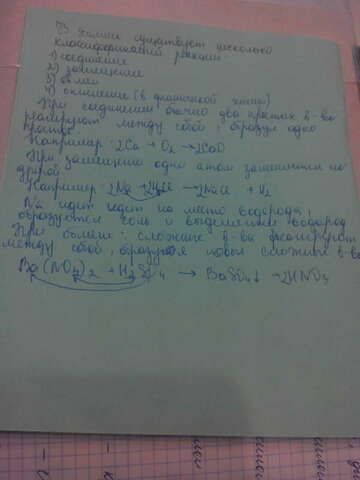 В химии существует несколько
классификаций реакций:
1) соединение
2) замещение
3) обмен
4) окисление (в органической химии)
При соединении обычно два простых в-ва
реагируют между собой, образуя одно
простое
Например: 2Ca + O2 → 2CaO
При замещении один атом заменяется на
другой
Например: 2Na + 2HCl → 2NaCl + H2
Na идет идет на место водорода,
образуется соль и выделяется водород
При обмене: сложные в-ва реагируют
между собой, образуя новые сложные в-ва
Ba(NO3)2 + H2SO4 → BaSO4↓ + 2HNO3